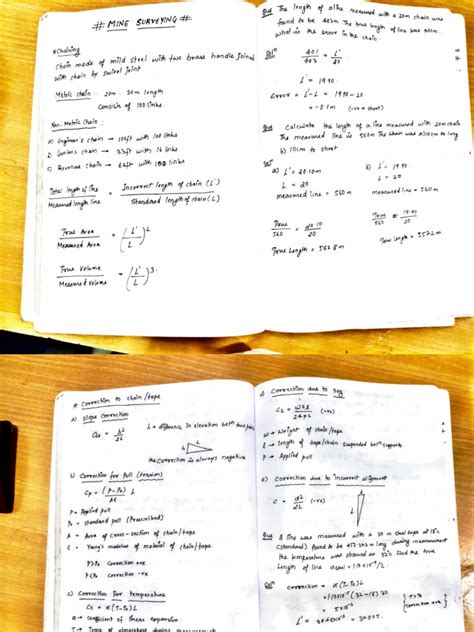 # MINE SURVEYING #
* Chaining
Chain made of mild steel with two brass handle, joined
with chain by swivel joint
Metric chain:- 20m - 30m length
Consists of 100 links.
Non-Metric Chain:
a) Engineer's chain → 100ft with 100 links
Gunters chain → 33ft with 16 links
c) Revenue chain →
Total length of line / Measured length line = Incorrect length of chain (L') / Standard length of chain (L)
True Area / Measured Area = (L'/L)²
True Volume / Measured volume = (L'/L)³.
Que The length of a line measured with a 20m chain was
found to be 402m The true length of line was 401m.
what is the error in the chain.
Sol
L' = 19.90
Error = L'-L = 19.90-20
= -0.1m (-ve → short)
Que Calculate the length of a line measured with 20m chain
The measured line is 560m The chain was a) 10cm to long
b) 10cm to short
Sol
a) L' = 20.10m
L = 20
measured line = 560m
True / 560 = 20.10 / 20
True Length = 562.8m
b) L' = 19.90
L = 20
measured line = 560m
True length = 557.2m
* Correction to chain/tape
a) Slope correction
h → difference in elevation betn two points
the correction is always negative
b) Correction for Pull (tension)
Cp = (P-P₀)/AE L
P = Applied pull
P₀ = standard pull (Prescribed)
A = Area of cross-section of chain/tape
E = Young's modulus of material of chain/tape
P>P₀ Correction +ve
P<P₀ Correction -ve
c) Correction for temperature
Ct = α(T-T₀)L
α → coefficient of linear expansion
d) Correction due to sag
(-ve)
w → Weight of chain/tape
L → length of tape/chain suspended betn supports
P → Applied pull
e) Correction due to incorrect alignment
c = d²/2L (-ve)
Que A line was measured with a 30 m steel tape at 18°C
(standard) found to be
the temperature was observed as 32°C Find the true
Length of line
Sol correction = α(T-T₀)L